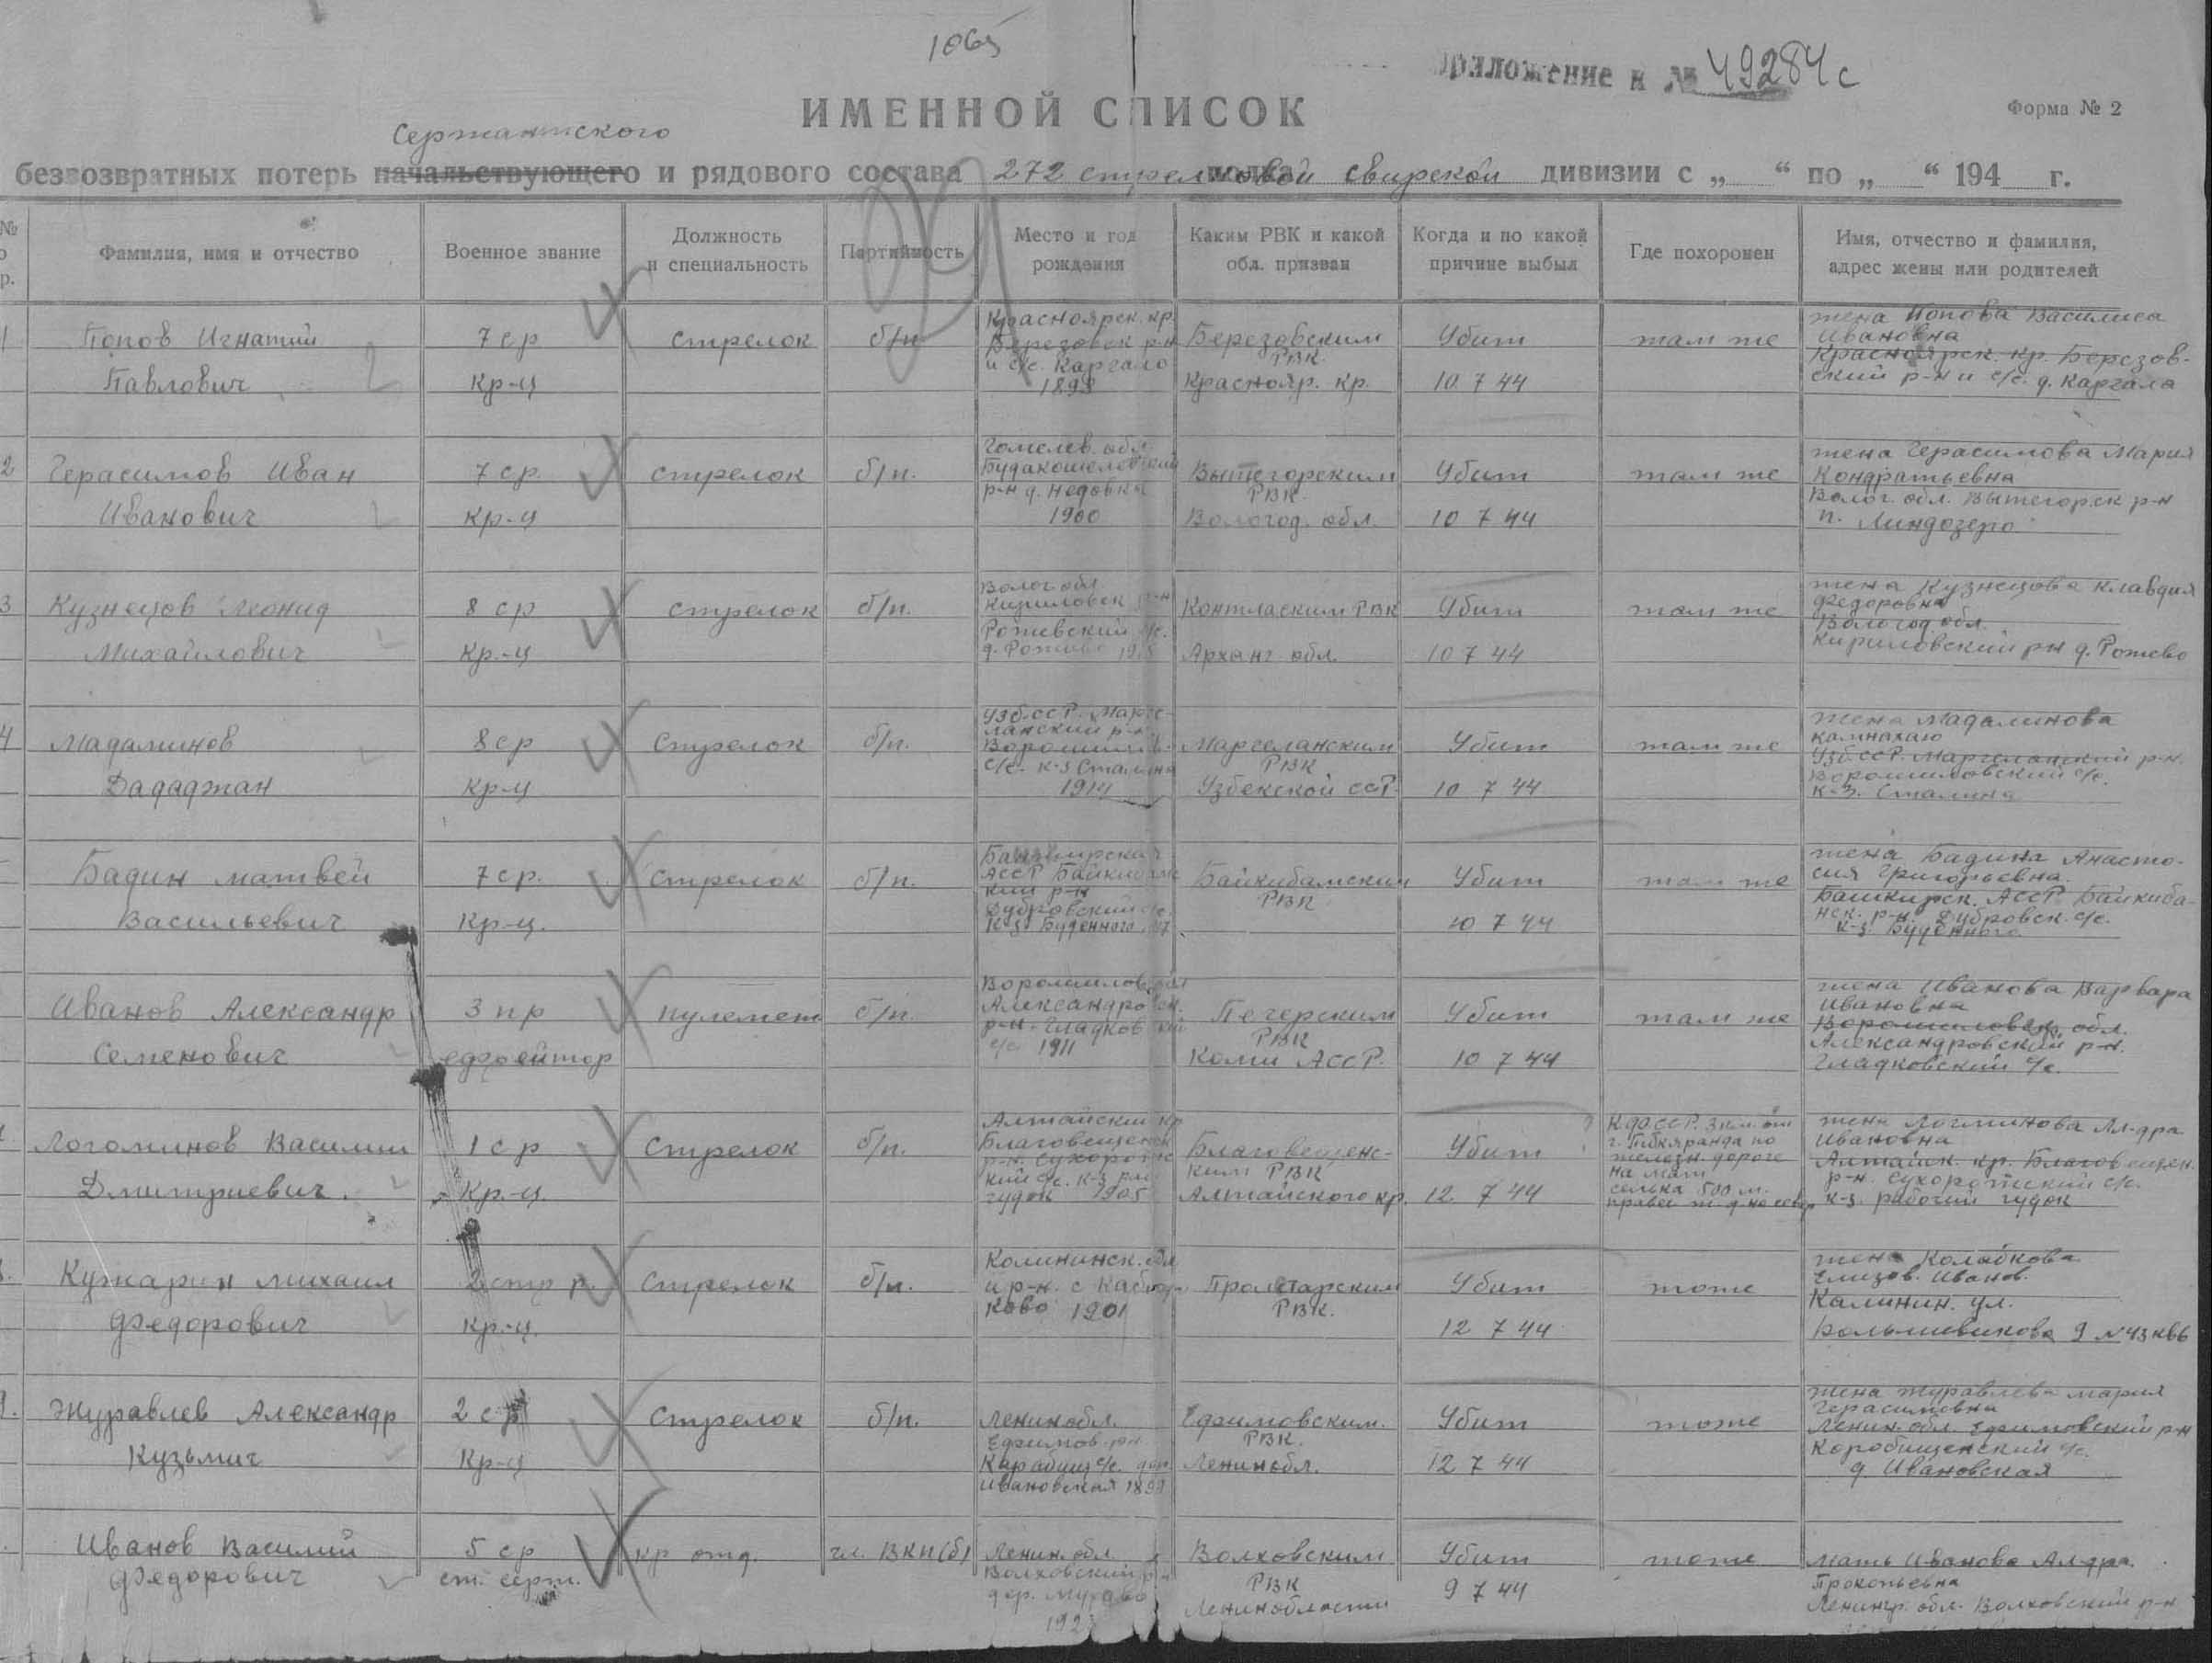 1065
приложение к № 49284с
ИМЕННОЙ СПИСОК
Форма № 2
Сержантского
безвозвратных потерь начальствующего и рядового состава 272 стрелковой Свирской дивизии с „ “ по „ “ 194 г.
№ Фамилия, имя и отчество Военное звание Должность и специальность Партийность Место и год рождения Каким РВК и какой обл. призван Когда и по какой причине выбыл Где похоронен Имя, отчество и фамилия, адрес жены или родителей
1 Попов Игнатий
Павлович
7 ср
кр-ц
стрелок
б/п
Красноярск. кр.
Березовск р-н
и с/с. Каргало
Березовским
РВК.
Краснояр. кр.
Убит
10 7 44
там же
жена Попова Василиса
Ивановна
Красноярск. кр. Березов-
ский р-н и с/с. д. Каргала
2 Герасимов Иван
Иванович
7 ср.
кр-ц
стрелок
б/п.
Гомелев. обл.
р-н д. Недовка
1900
Вытегорским
РВК.
Вологод. обл.
Убит
10 7 44
там же
жена Герасимова Мария
Кондратьевна
Волог. обл. Вытегорск р-н
п. Линдозеро
3 Кузнецов Леонид
Михайлович
8 ср
кр-ц
стрелок
б/п.
Волог обл
Кириловск р-н
Рожевский с/с.
Котласким РВК
Арханг обл.
Убит
10 7 44
там же
жена Кузнецова Клавдия
Федоровна
Вологод обл.
Кириловский рн д. Рожево
4 Мадаминов
Дададжан
8 ср
кр-ц
стрелок
б/п.
Узб. ССР. Марге-
ланский р-н
с/с. к-з Сталина
1914
Маргеланским
РВК
Узбекской ССР.
Убит
10 7 44
там же
жена Мадаминова
Узб. ССР. Маргеланский р-н.
Ворошиловский с/с.
к-з. Сталина
Бадин Матвей
Васильевич
7 ср.
кр-ц.
стрелок
б/п.
АССР
кий р-н
Дубровский с/с.
к-з Буденного
Байкибамским
РВК
Убит
10 7 44
там же
жена Бадина Анаста-
сия Григорьевна.
Башкирск. АССР. Байкиба-
нск. р-н. Дубровск. с/с.
к-з. Буденного
Иванов Александр
Семенович
3 пр
ефрейтор
пулемет
б/п.
Ворошилов
р-н
с/с 1911
Печерским
РВК
Коми АССР.
Убит
10 7 44
там же
жена Иванова Варвара
Ивановна
Ворошиловск. обл.
Александровский р-н.
Гладковский с/с.
Логоминов Василий
Дмитриевич.
1 ср
кр-ц.
стрелок
б/п.
Алтайский кр
Благовещенск
кий с/с. к-з раб
гудок 1905
Благовещенс-
ким РВК
Алтайского кр.
Убит
12 7 44
КФССР. 3 км. от
г. Питкяранда по
железн. дороге
500 м.
жена Логминова Ал-дра
Ивановна
Алтайск. кр. Благовещен.
р-н. с/с.
к-з. рабочий гудок
Кужарин Михаил
Федорович
2 стр р.
кр-ц.
стрелок
б/п.
Калининск. обл
и р-н.
1901
Пролетарским
РВК.
Убит
12 7 44
тоже
жена Колабкова
Елизов. Иванов.
Калинин. ул.
Большевикова д N43 кв6
9. Журавлев Александр
Кузьмич
2 ср
кр-ц
стрелок
б/п.
Ленинобл.
Ефимов. рн
Ивановская
Ефимовским.
РВК.
Ленинобл.
Убит
12 7 44
тоже
жена Журавлева Мария
Герасимовна
Ленин. обл. Ефимовский р-н
Коробищенский с/с.
д Ивановская
Иванов Василий
Федорович
5 ср
ст. серж.
кр отд.
чл. ВКП(б)
Ленин. обл.
Волховский
Волховским
РВК
Ленинобласти
Убит
9 7 44
тоже
мать Иванова Ал-дра.
Прокопьевна
Ленингр. обл. Волховский р-н